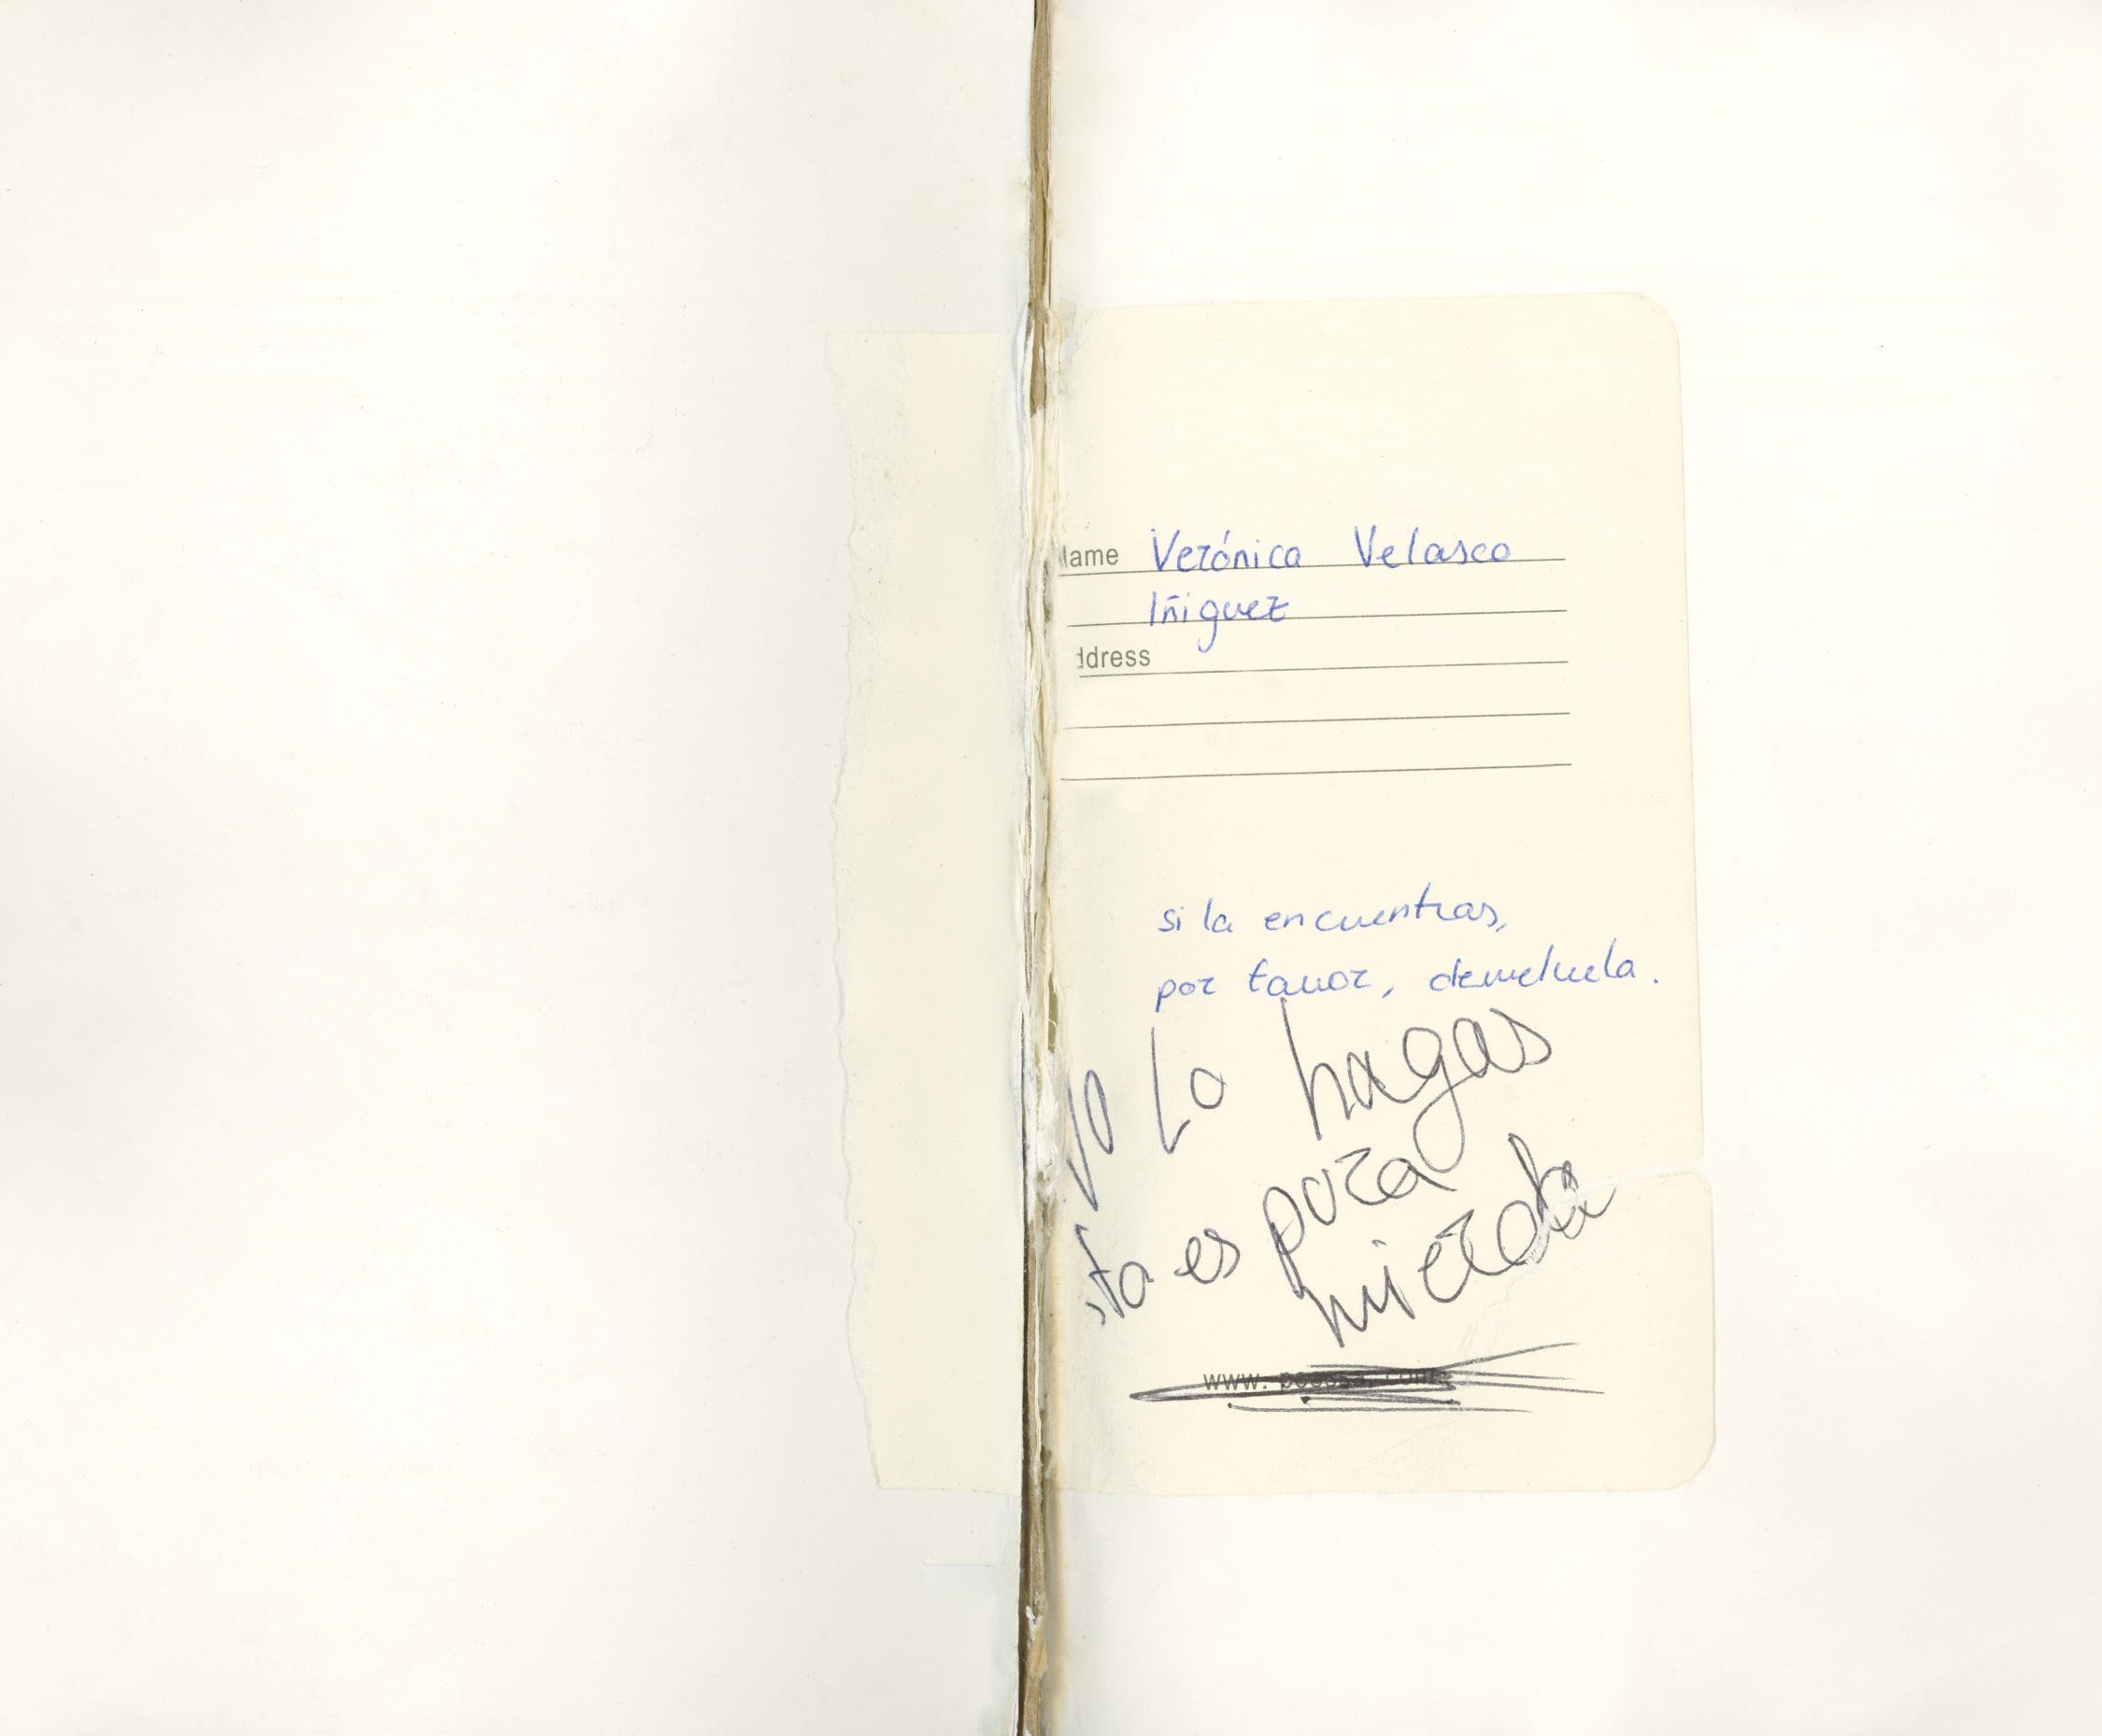 Name Verónica Velasco
Iñiguez
ddress
si la encuentras,
por favor, devuelvela.
No lo hagas
sta es pura
mierda
www.